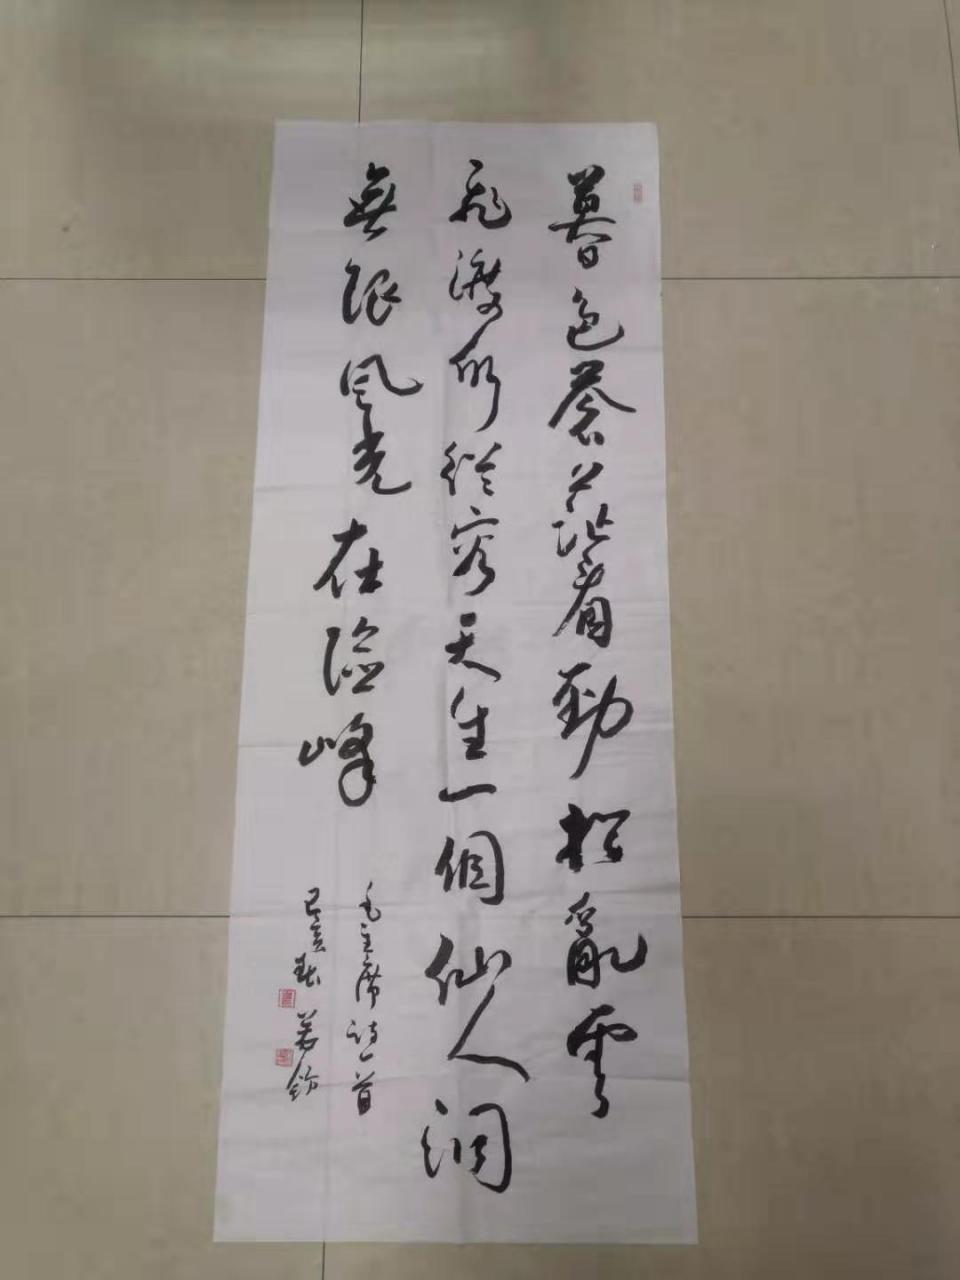 暮色蒼茫看勁松亂雲
飛渡仍從容天生一個仙人洞
無限風光在險峰
毛主席詩一首
己亥秋